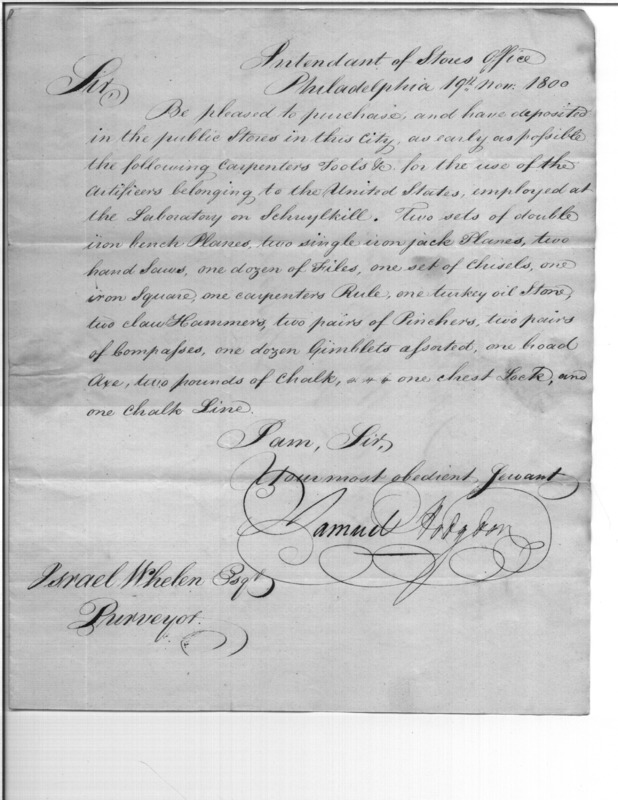 Intendant of Stores Office
Philadelphia 19th Nov. 1800
Sir,
Be pleased to purchase, and have deposited
in the public Stores in this City, as early as possible
the following Carpenters Tools &c. for the use of the
Artificers belonging to the United States, employed at
the Laboratory on Schuylkill. Two sets of double
iron bench Planes, two single iron jack Planes, two
hand Saws, one dozen of Files, one set of Chisels, one
iron Square, one carpenters Rule, one turkey oil Stone,
two claw Hammers, two pairs of Pinchers, two pairs
of Compasses, one dozen Gimblets assorted, one broad
Axe, two pounds of Chalk, one chest Lock, and
one Chalk Line.
I am, Sir,
Your most obedient Servant
Samuel Hodgdon
Israel Whelen Esqr.
Purveyor.